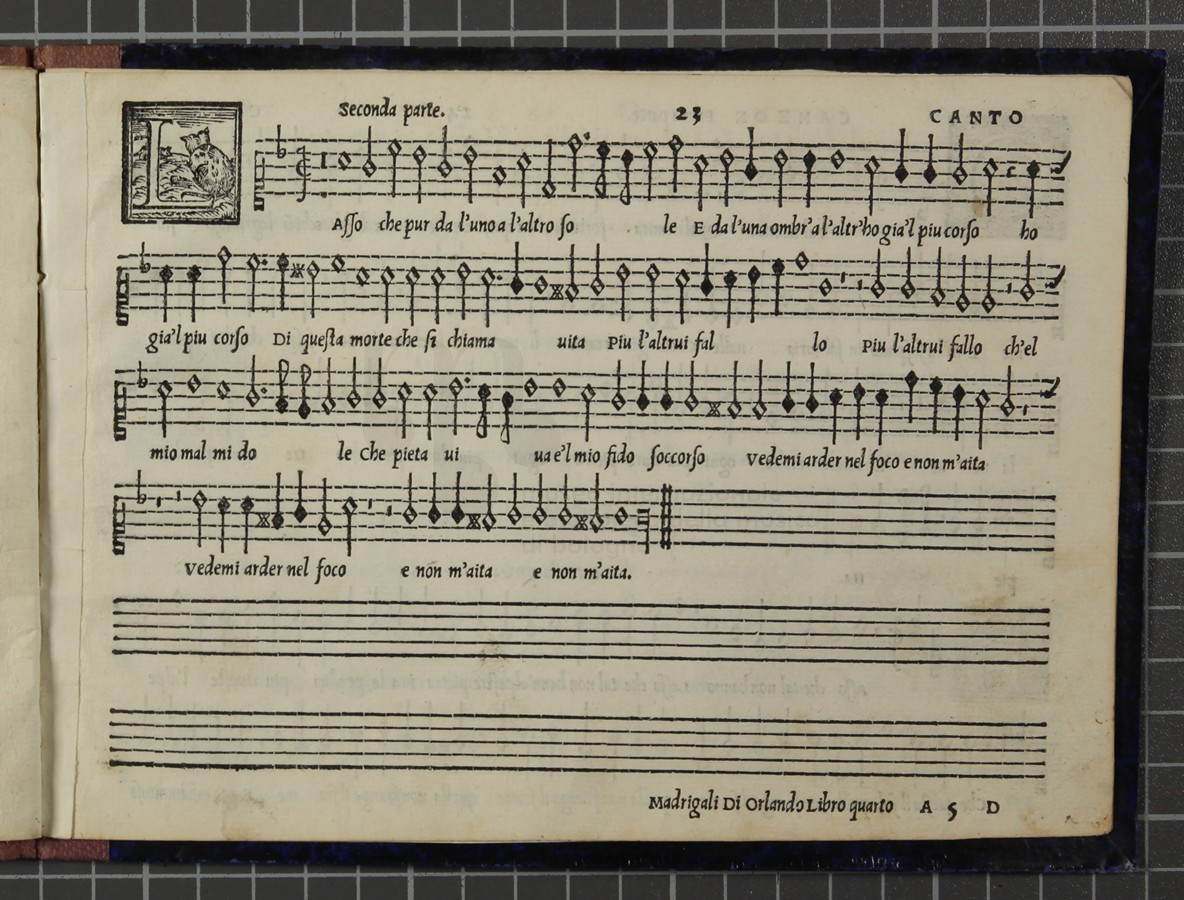 Seconda parte. 23 CANTO
LAſſo che pur da l'uno a l'altro ſo le E da l'una ombr'a l'altr'ho gia'l piu corſo ho
gia'l piu corſo Di queſta morte che ſi chiama uita Piu l'altrui fal lo Piu l'altrui fallo ch'el
mio mal mi do le Che pieta ui ua e'l mio fido ſoccorſo Vedemi arder nel foco e non m'aita
Vedemi arder nel foco e non m'aita e non m'aita.
Madrigali Di Orlando Libro quarto A 5 D